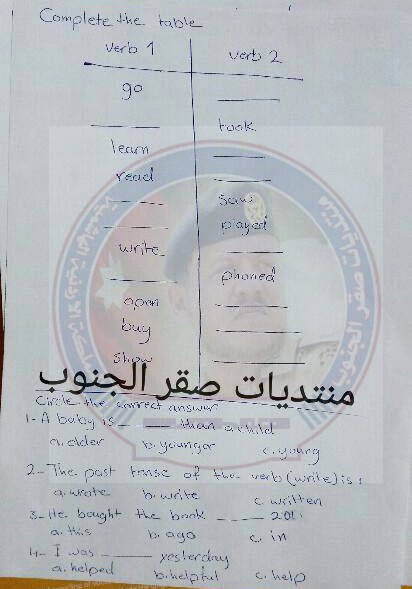 Complete the table
verb 1 verb 2
go ______
______ took
learn ______
read ______
______ saw
______ played
write ______
______ phoned
open ______
buy ______
show ______
منتديات صقر الجنوب
Circle the correct answer
1- A baby is ______ than a child
a. older b. younger c. young
2- The past tense of the verb (write) is:
a. wrote b. write c. written
3- He bought the book ______
a. this b. ago c. in
4- I was ______ yesterday
a. helped b. helpful c. help